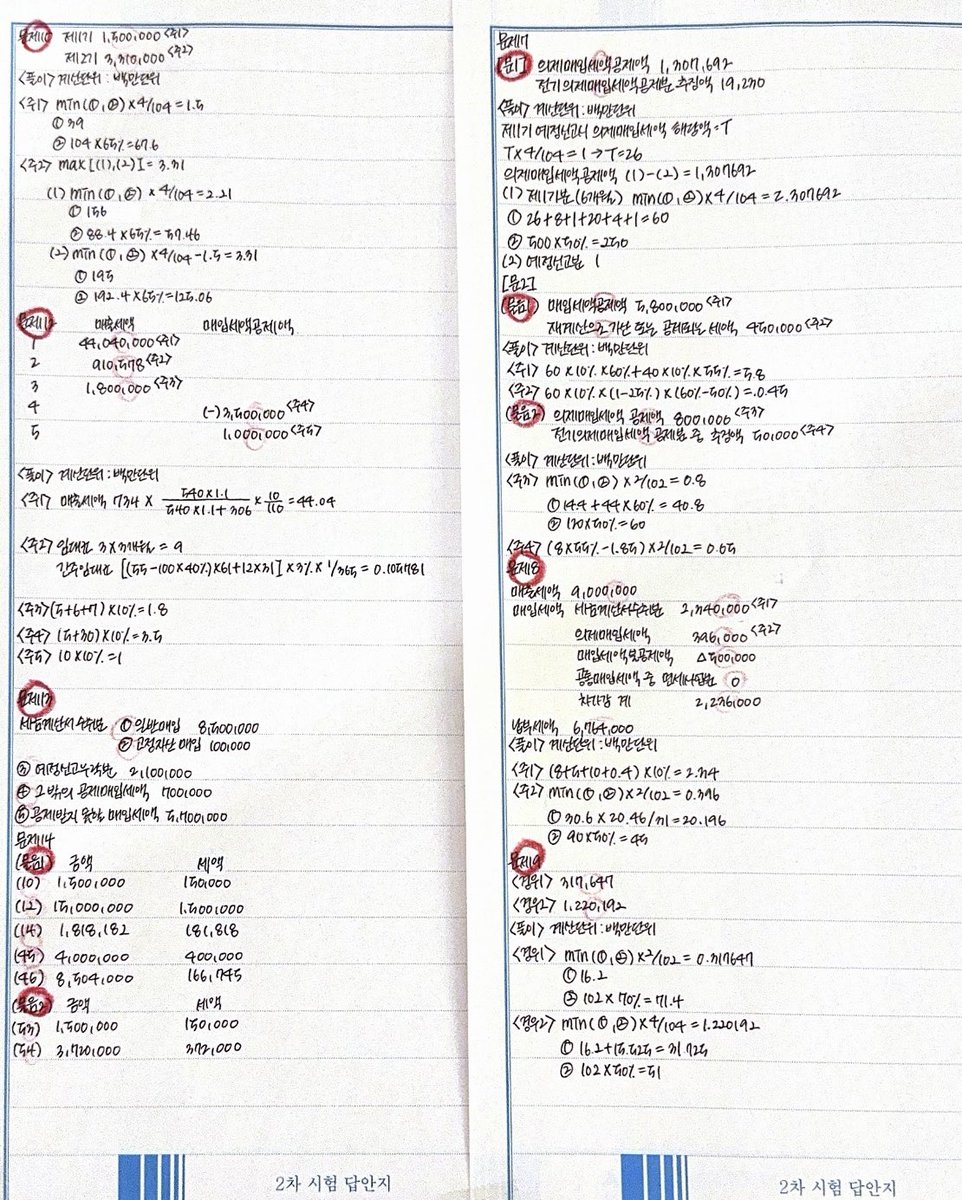 문제10 제1기 1,500,000 <주1>
제2기 3,310,000 <주2>
<풀이> 계산단위 : 백만단위
<주1> min(①,②)×4/104=1.5
① 39
② 104×65%=67.6
<주2> max[(1),(2)]=3.31
(1) min(①,②)×4/104=2.21
① 156
② 88.4×65%=57.46
(2) min(①,②)×4/104-1.5=3.31
① 195
② 192.4×65%=125.06
매출세액 매입세액공제액
1 44,040,000 <주1>
2 910,578 <주2>
3 1,800,000 <주3>
4 (-)3,500,000 <주4>
5 1,000,000 <주5>
<풀이> 계산단위 : 백만단위
<주1> 매출세액 734 × 540×1.1/540×1.1+306 × 10/110 = 44.04
<주2> 임대료 3×3개월 = 9
간주임대료 [(55-100×40%)×61+12×31]×3%×1/365=0.105781
<주3> (5+6+7)×10%=1.8
<주4> (5+30)×10%=3.5
<주5> 10×10%=1
문제13
세금계산서 수취분 ① 일반매입 8,500,000
② 고정자산 매입 100,000
③ 예정신고누락분 2,100,000
④ 그 밖의 공제매입세액 700,000
⑤ 공제받지 못할 매입세액 5,700,000
문제14
(물음1) 금액 세액
(10) 1,500,000 150,000
(12) 15,000,000 1,500,000
(14) 1,818,182 181,818
(45) 4,000,000 400,000
(46) 8,504,000 166,745
(물음2) 금액 세액
(53) 1,500,000 150,000
(54) 3,720,000 372,000
2차 시험 답안지
문제17
[문1] 의제매입세액공제액 1,307,692
전기의제매입세액공제분 추징액 19,230
<풀이> 계산단위 : 백만단위
제1기 예정신고시 의제매입세액 해당액=T
T×4/104=1→T=26
의제매입세액공제액 (1)-(2)=1,307692
(1) 제1기분(6개월) min(①,②)×4/104=2.307692
① 26+8+1+20+4+1=60
② 500×50%=250
(2) 예정신고분 1
[문2]
(물음1) 매입세액공제액 5,800,000 <주1>
재계산으로 가산 또는 공제되는 세액 450,000 <주2>
<풀이> 계산단위 : 백만단위
<주1> 60×10%×60%+40×10%×55%=5.8
<주2> 60×10%×(1-25%)×(60%-50%)=0.45
(물음2) 의제매입세액 공제액 800,000 <주3>
전기의제매입세액 공제분 중 추징액 50,000 <주4>
<풀이> 계산단위 : 백만단위
<주3> min(①,②)×2/102=0.8
① 14.4+44×60%=40.8
② 120×50%=60
<주4> (8×55%-1.85)×2/102=0.05
문제18
매출세액 9,000,000
매입세액 세금계산서수취분 2,340,000 <주1>
의제매입세액 396,000 <주2>
매입세액불공제액 △500,000
공통매입세액 중 면세사업분 0
차가감 계 2,236,000
납부세액 6,764,000
<풀이> 계산단위 : 백만단위
<주1> (8+5+10+0.4)×10%=2.34
<주2> min(①,②)×2/102=0.396
① 30.6×20.46/31=20.196
② 90×50%=45
문제19
<경우1> 317,647
<경우2> 1,220,192
<풀이> 계산단위 : 백만단위
<경우1> min(①,②)×2/102=0.317647
① 16.2
② 102×70%=71.4
<경우2> min(①,②)×4/104=1.220192
① 16.2+15.525=31.725
② 102×50%=51
2차 시험 답안지